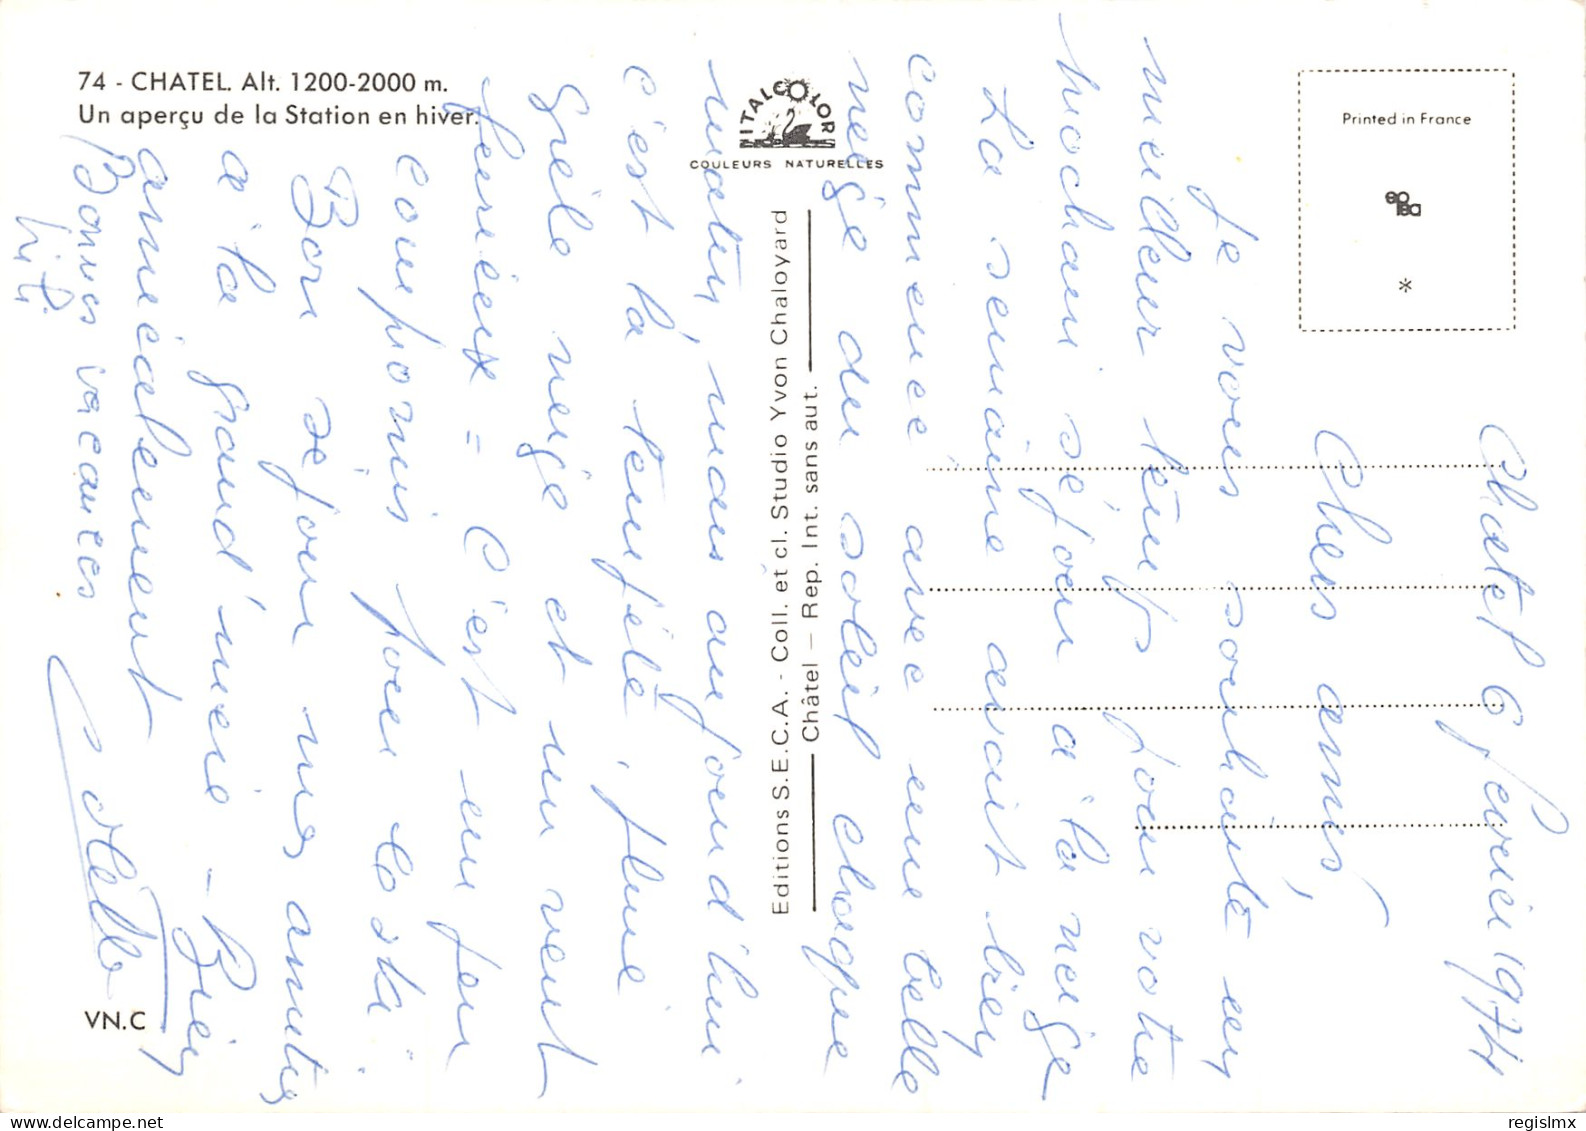 74 - CHATEL. Alt. 1200-2000 m.
Un aperçu de la Station en hiver.
VITALCOLOR
COULEURS NATURELLES
Printed in France
*
Editions S.E.C.A. - Coll. et cl. Studio Yvon Chaloyard
Châtel – Rep. Int. sans aut.
VN.C
Chatel 6 fevrier 1974
Chers amis,
Je vous souhaite un
meilleur temps pour votre
prochain séjour à la neige
La semaine avait bien
commencé avec une belle
neige du soleil chaque
matin, mais aujourd'hui
c'est la tempête, pluie
grêle neige et un vent
furieux = C'est un peu
compromis pour le ski
Bon séjour mes amitiés
à la grand'mère - Bien
amicalement
Bonnes vacances
regislmx